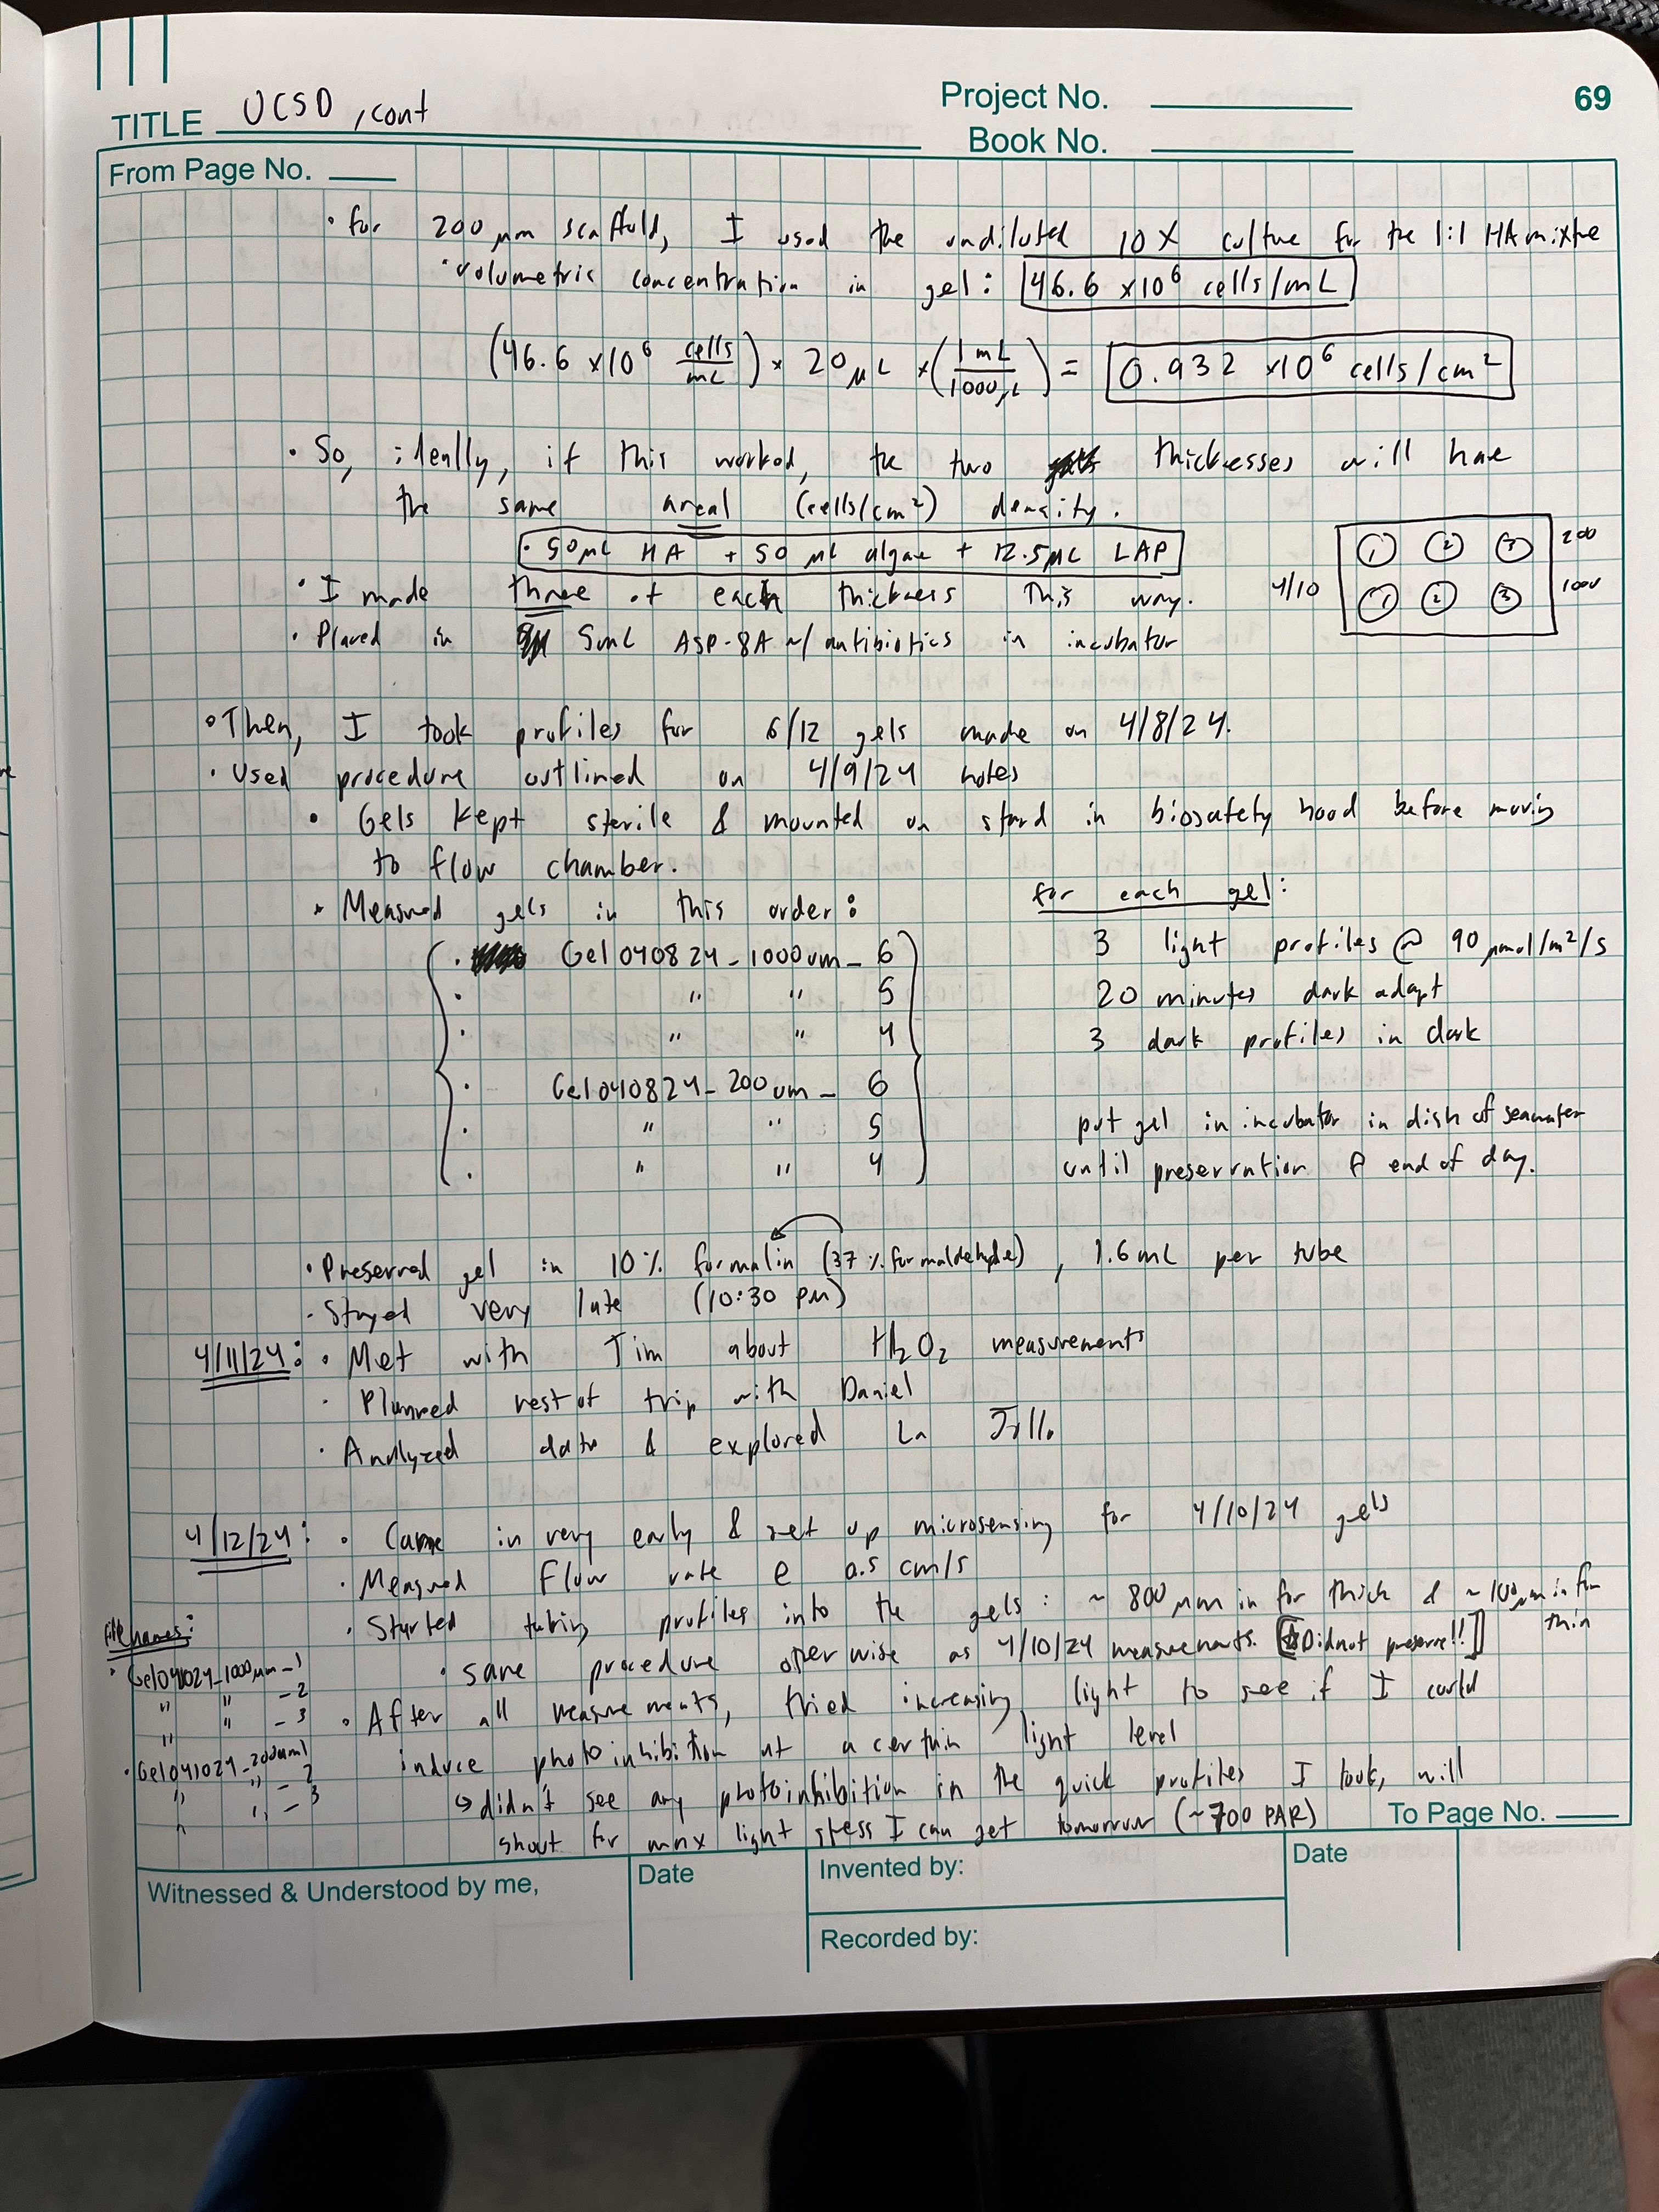 TITLE UCSD, cont
Project No.
Book No.
69
From Page No.
• For 200 µm scaffold, I used the undiluted 10X culture for the 1:1 HA mixture
• volumetric concentration in gel: 46.6 x10⁶ cells/mL
(46.6 x10⁶ cells/mL) x 20 µL x (1 mL/1000µL) = 0.932 x10⁶ cells/cm²
• So, ideally, if this worked, the two thicknesses will have
the same areal (cells/cm²) density.
• 50µL HA + 50 µL algae + 12.5µL LAP
• I made three of each thickness this way.
• Placed in 5mL ASP-8A w/ antibiotics in incubator
4/10
1 2 3 200
1 2 3 1000
• Then, I took profiles for 6/12 gels made on 4/8/24.
• Used procedure outlined on 4/9/24 notes
• Gels kept sterile & mounted on stand in biosafety hood before moving
to flow chamber.
• Measured gels in this order:
• Gel040824_1000um_6
• " " 5
• " " 4
• Gel040824_200um_6
• " " 5
• " " 4
for each gel:
3 light profiles @ 90 µmol/m²/s
20 minutes dark adapt
3 dark profiles in dark
put gel in incubator in dish of seawater
until preservation @ end of day.
• Preserved gel in 10% formalin (37% formaldehyde), 1.6mL per tube
• Stayed very late (10:30 PM)
4/11/24: • Met with Tim about H₂O₂ measurements
• Planned rest of trip with Daniel
• Analyzed data & explored La Jolla
4/12/24: • Came in very early & set up microsensing for 4/10/24 gels
• Measured flow rate @ 0.5 cm/s
• Started taking profiles into the gels: ~ 800 µm in for thick & ~100µm in for
thin
• same procedure otherwise as 4/10/24 measurements. [Did not preserve!!]
• After all measurements, tried increasing light to see if I could
induce photoinhibition at a certain light level
↳ didn't see any photoinhibition in the quick profiles I took, will
shoot for max light stress I can get tomorrow (~700 PAR)
File names:
• Gel041024_1000µm_1
" " -2
" " -3
• Gel041024_200um1
" " - 2
" " - 3
To Page No.
Witnessed & Understood by me,
Date
Invented by:
Recorded by:
Date